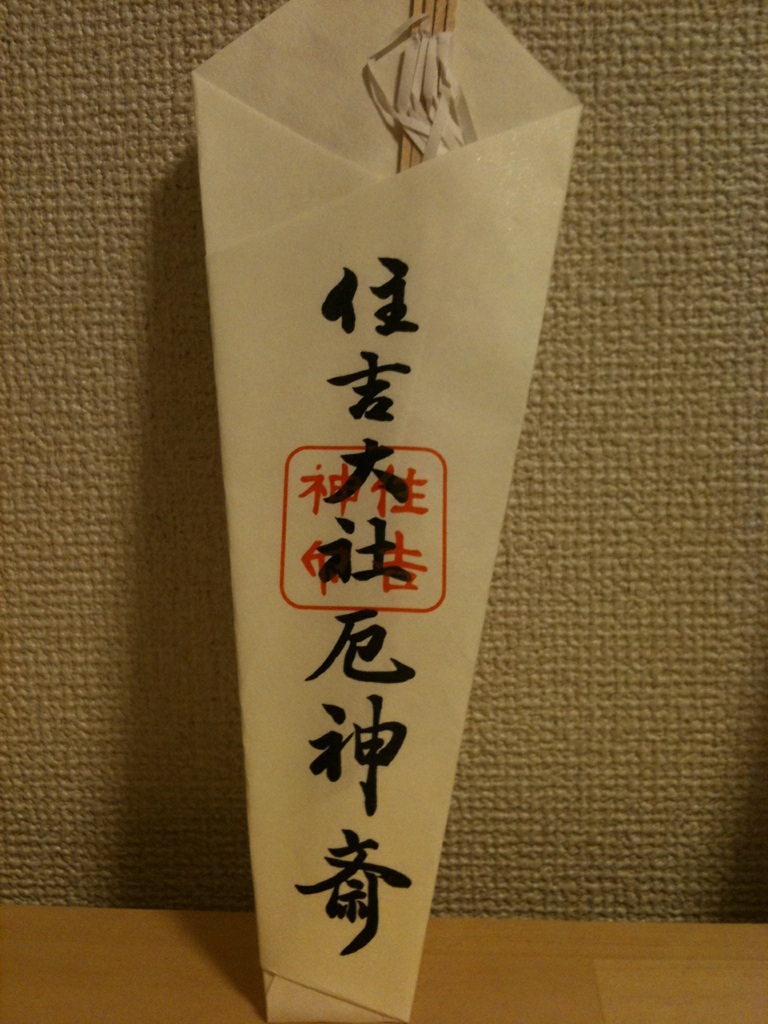 住吉大社厄神斎
住吉
神